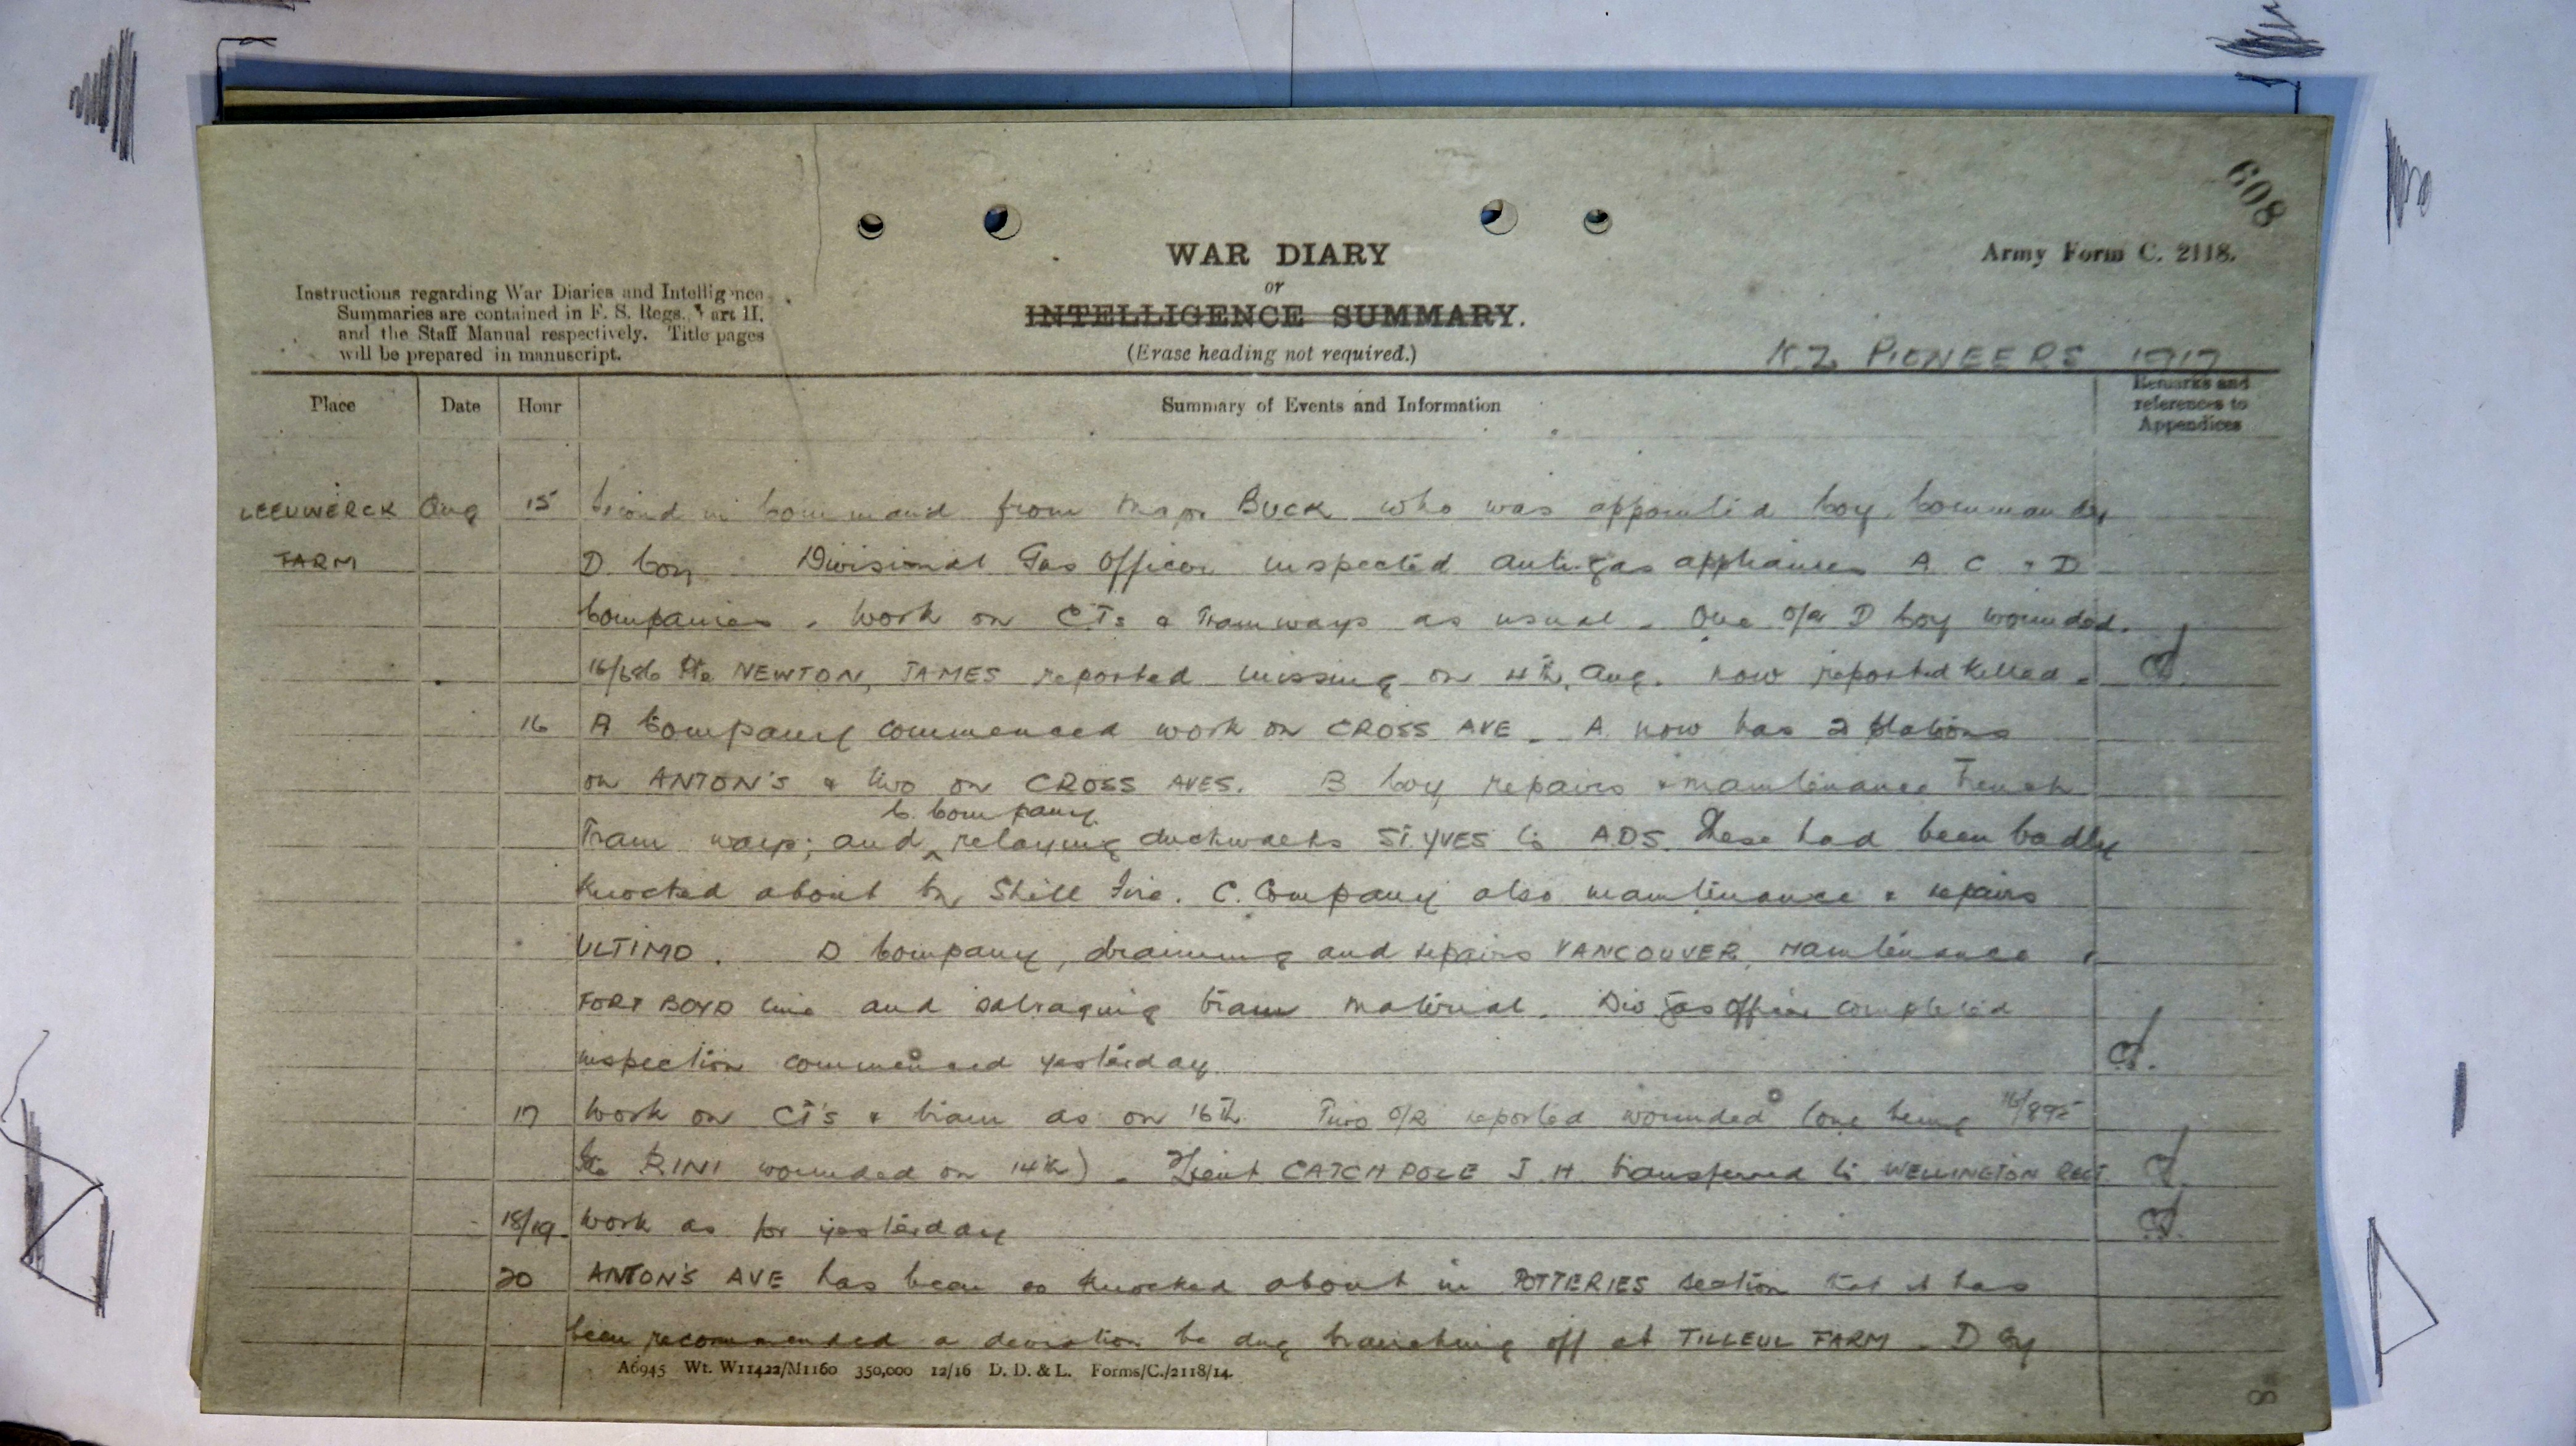 608
WAR DIARY
or
INTELLIGENCE SUMMARY.
(Erase heading not required.)
Army Form C. 2118.
Instructions regarding War Diaries and Intelligence
Summaries are contained in F. S. Regs., Part II.
and the Staff Manual respectively. Title pages
will be prepared in manuscript.
N.Z. PIONEERS 1917
Place Date Hour Summary of Events and Information Remarks and references to Appendices
LEEUWERCK Aug 15 Second in Command from Major BUCK who was appointed Coy. Commander
FARM D Coy Divisional Gas Officer inspected anti-gas appliances A C & D
Companies. Work on C.Ts & Tramways as usual. One O/R D Coy wounded.
Pte NEWTON, JAMES reported missing on 4th. Aug. now reported killed.
16 A Company commenced work on CROSS AVE. A now has 2 platoons
on ANTON'S & two on CROSS AVES. B Coy repairs & maintenance Trench
C. Company
Tram ways; and relaying duckwalks ST. YVES to A.D.S. These had been badly
knocked about by Shell Fire. C. Company also maintenance & repairs
ULTIMO. D Company, draining and repairs VANCOUVER, Maintenance
FORT BOYD line and salvaging tram material. Div Gas Officer completed
inspection commenced yesterday
17 Work on CT's & tram as on 16th Two O/R reported wounded (one being 16/895
Pte RINI wounded on 14th). Lieut CATCHPOLE J. H. transferred to WELLINGTON REGT
18/19 Work as for yesterday
20 ANTON'S AVE has been so knocked about in POTTERIES section that it has
been recommended a deviation be dug branching off at TILLEUL FARM. D Coy
A6945 Wt. W11422/M1160 350,000 12/16 D. D. & L. Forms/C./2118/14.
8